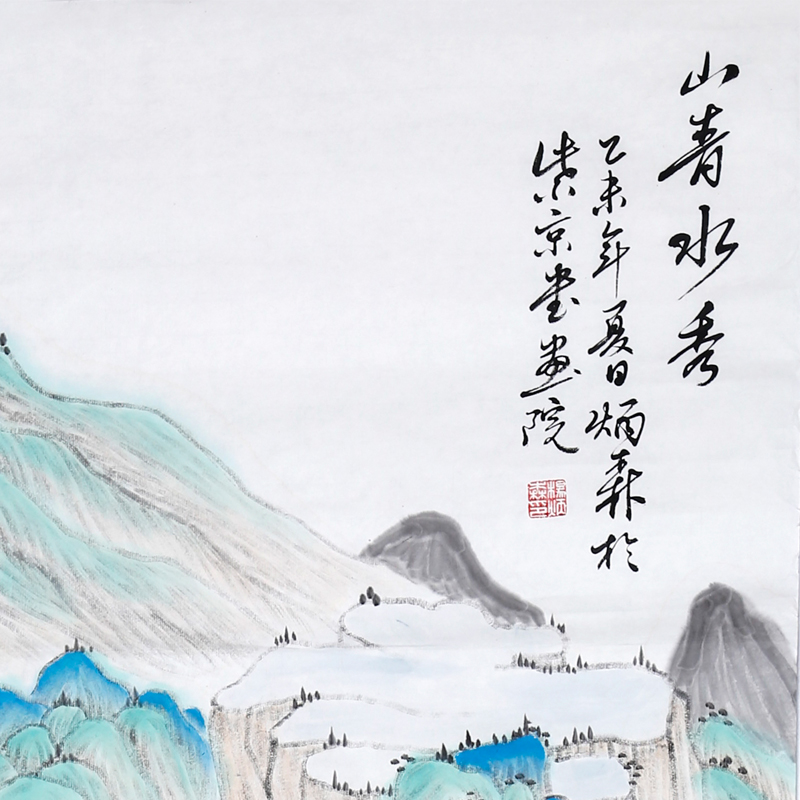 山青水秀
乙未年夏日炳森於
紫京书画院
楊炳森印